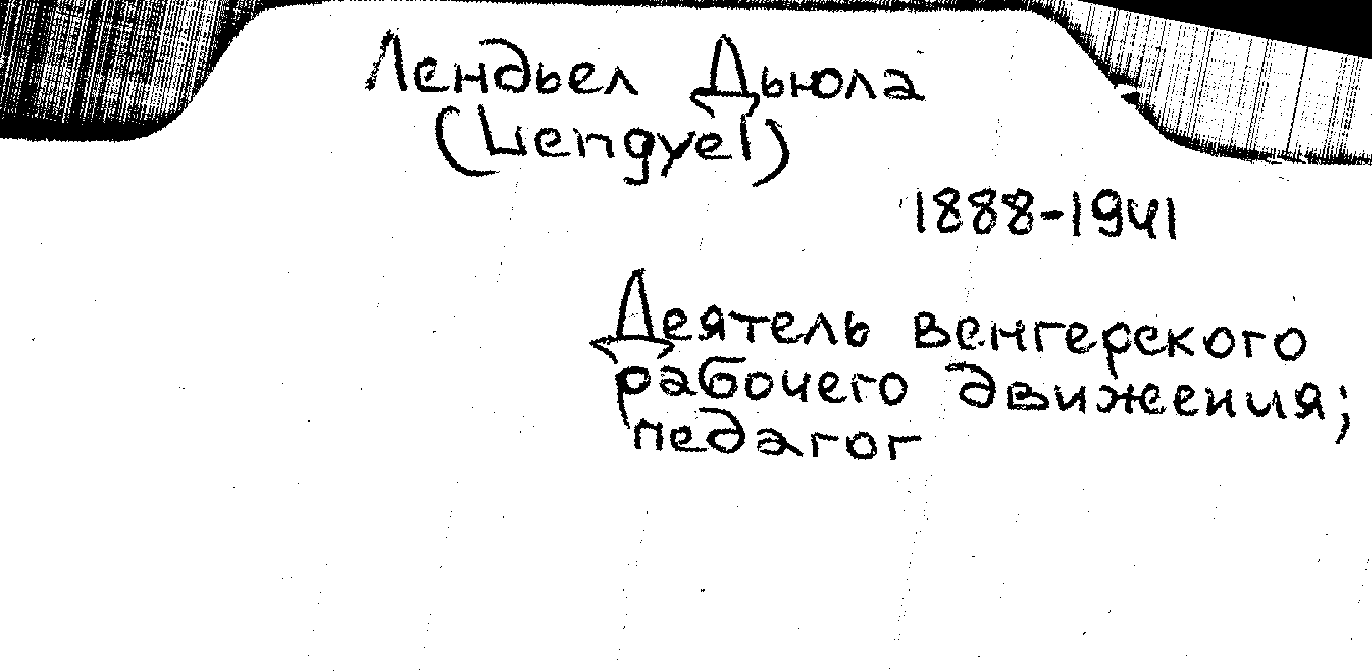 Лендьел Дьюла
(Lengyel)
1888-1941
Деятель венгерского
рабочего движения;
педагог